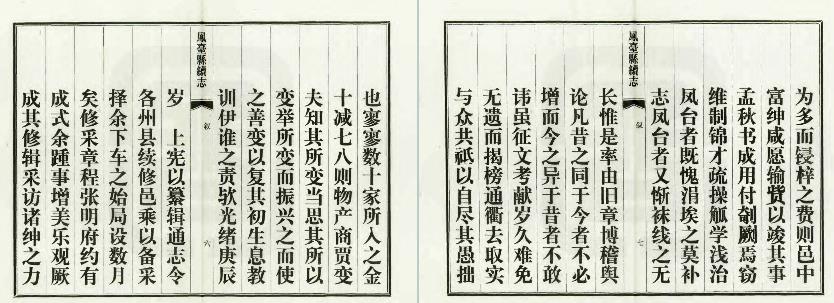 也寥寥数十家所入之金
十减七八则物产商贾变
夫知其所变当思其所以
变举所变而振兴之而使
之善变以复其初生息教
训伊谁之责欤光绪庚辰
鳳臺縣續志
叙
六
岁 上宪以纂辑通志令
各州县续修邑乘以备采
择余下车之始局设数月
矣修采章程张明府约有
成式余踵事增美乐观厥
成其修辑采访诸绅之力
为多而锓梓之费则邑中
富绅咸愿输赀以竣其事
孟秋书成用付剞劂焉窃
维制锦才疏操觚学浅治
凤台者既愧涓埃之莫补
志凤台者又惭袜线之无
鳳臺縣續志
叙
七
长惟是率由旧章博稽舆
论凡昔之同于今者不必
增而今之异于昔者不敢
讳虽征文考献岁久难免
无遗而揭榜通衢去取实
与众共祇以自尽其愚拙